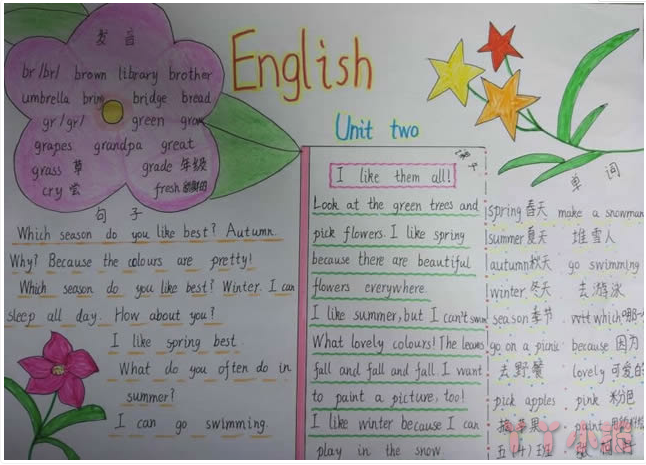 English
Unit two
发音
br /br/ brown library brother
umbrella bring bridge bread
gr /gr/ green grow
grapes grandpa great
grass 草 grade 年级
cry 尝 fresh 新鲜的
句子
Which season do you like best? Autumn.
Why? Because the colours are pretty!
Which season do you like best? Winter. I can
sleep all day. How about you?
I like spring best.
What do you often do in
summer?
I can go swimming.
I like them all!
Look at the green trees and
pick flowers. I like spring
because there are beautiful
flowers everywhere.
I like summer, but I can't swim
What lovely colours! The leaves
fall and fall and fall. I want
to paint a picture, too!
I like winter because I can
play in the snow.
单词
spring 春天 make a snowman
summer 夏天 堆雪人
autumn 秋天 go swimming
winter 冬天 去游泳
season 季节 which 哪一
go on a picnic because 因为
去野餐 lovely 可爱的
pick apples pink 粉色
摘苹果 paint
五(十)班